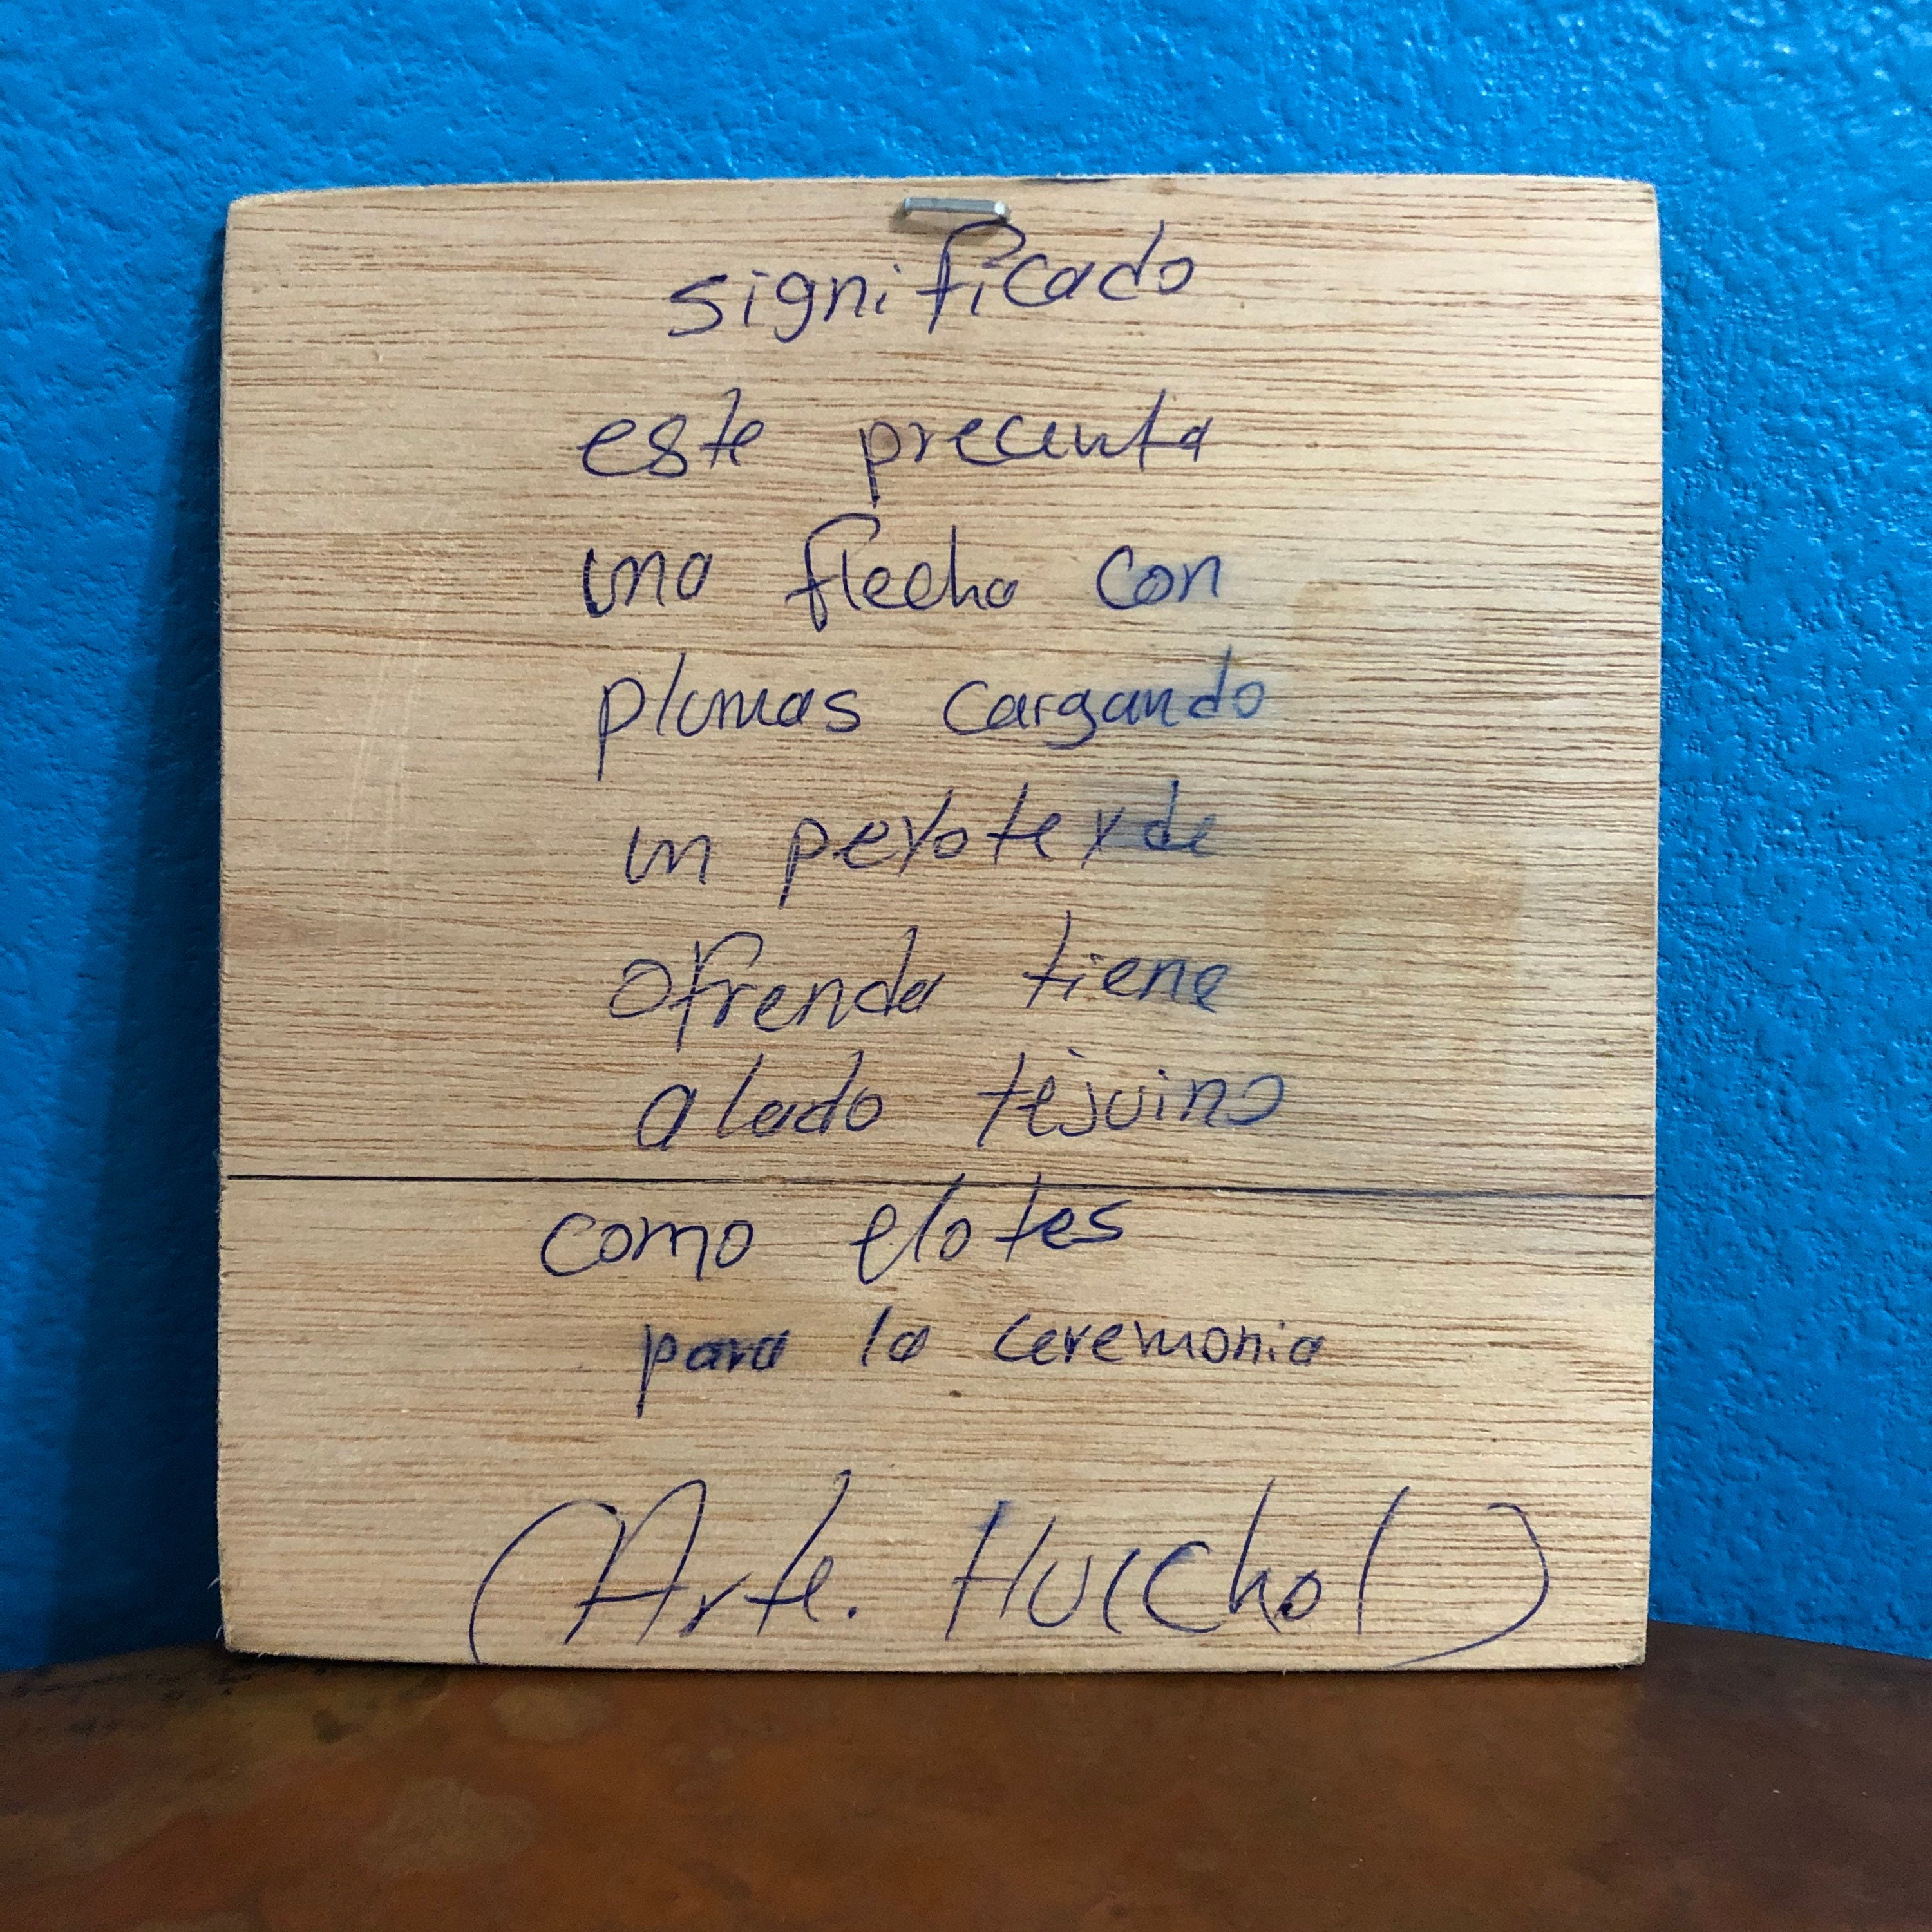 significado
este precenta
una flecha con
plumas cargando
un peyote y de
ofrenda tiene
a lado tejuino
como elotes
para la ceremonia
(Arte. Huichol)